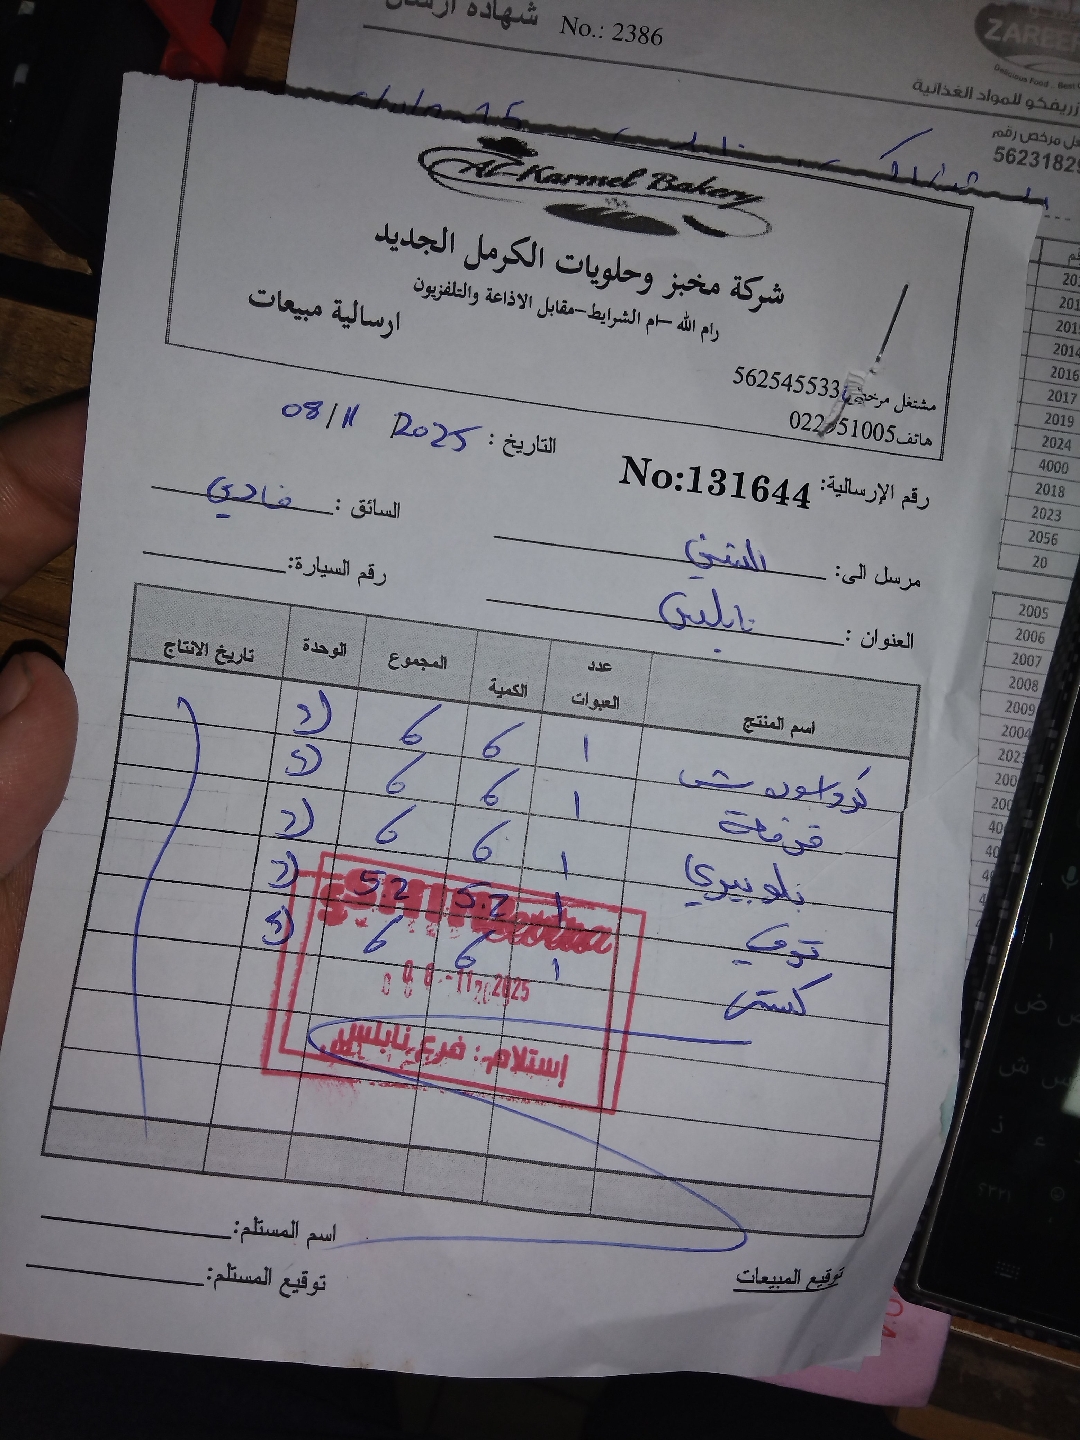 شهادة ارسال
No.: 2386
ZAREEF
Delicious Food . Best
زريفكو للمواد الغذائية
مرخص رقم
5623182
Al-Karmel Bakery
شركة مخبز وحلويات الكرمل الجديد
رام الله -ام الشرايط-مقابل الاذاعة والتلفزيون
ارسالية مبيعات
مشتغل مرخص 562545533
هاتف 022951005
التاريخ : 08/11 2025
رقم الإرسالية: No:131644
السائق : فادي
مرسل الى: الشني
رقم السيارة:
العنوان : نابلس
اسم المنتج عدد العبوات الكمية المجموع الوحدة تاريخ الانتاج
كرواسون 1 6 6
قرفة 1 6 6
بلوبيري 1 6 6
توفي 1 52 52
كستر 1 6 6
08-11-2025
إستلام: فرع نابلس
اسم المستلم:
توقيع المستلم:
توقيع المبيعات
2014
2016
2017
2019
2024
4000
2018
2023
2056
20
2005
2006
2007
2008
2009
2004